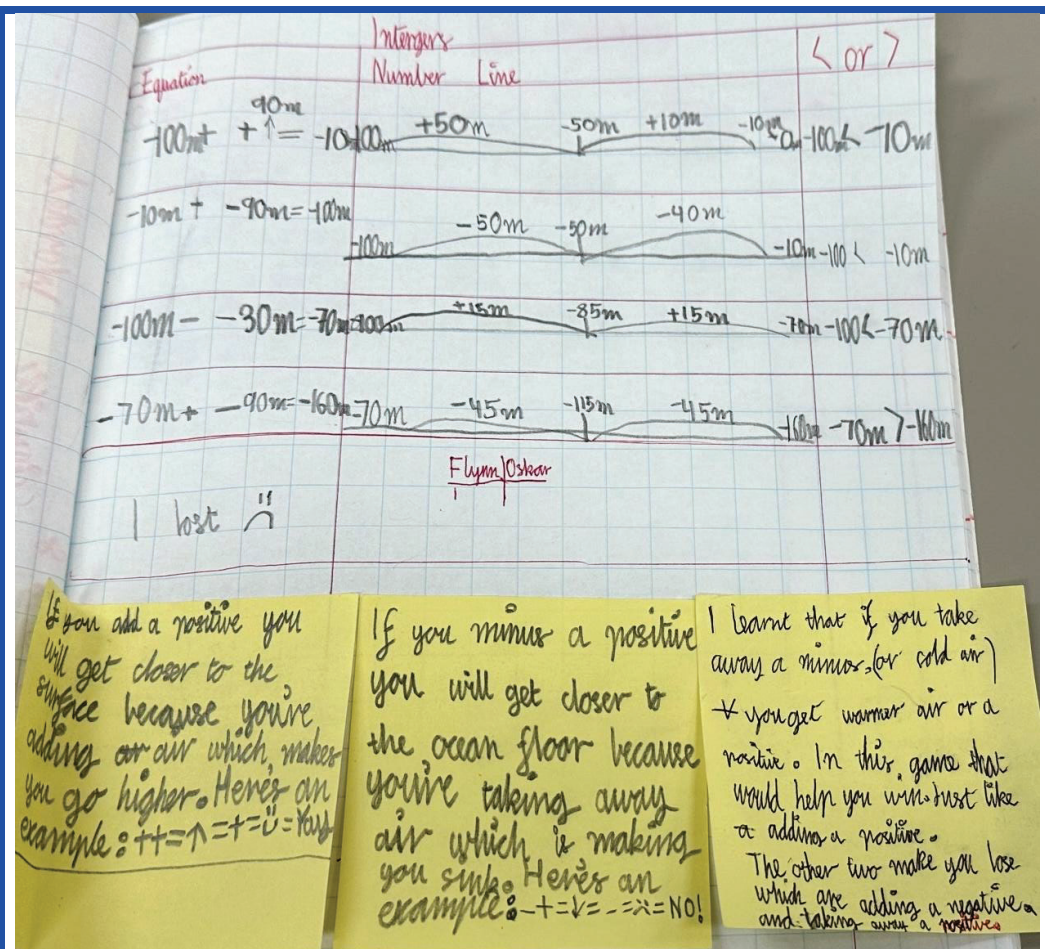 Intengers
Equation Number Line < or >
90m
-100m+ +↑= -10 -100m +50m -50m +10m -10m -100m< -10m
-10m + -90m=-100m -100m -50m -50m -40m -10m -100 < -10m
-100m - -30m=-70m -100m +15m -85m +15m -70m -100<-70m
-70m+ -90m=-160m -70m -45m -115m -45m -160m -70m >-160m
Flynn|Oskar
I lost
If you add a positive you
will get closer to the
surface because you're
adding air which, makes
you go higher. Here's an
example: ++=↑=+=Ü=Yay
If you minus a positive
you will get closer to
the ocean floor because
you're taking away
air which is making
you sink. Here's an
example: -+=↓=-=NO!
I learnt that if you take
away a minus, (or cold air)
you get warmer air or a
positive. In this, game that
would help you win. Just like
a adding a positive.
The other two make you lose
which are adding a negative
and taking away a positive.